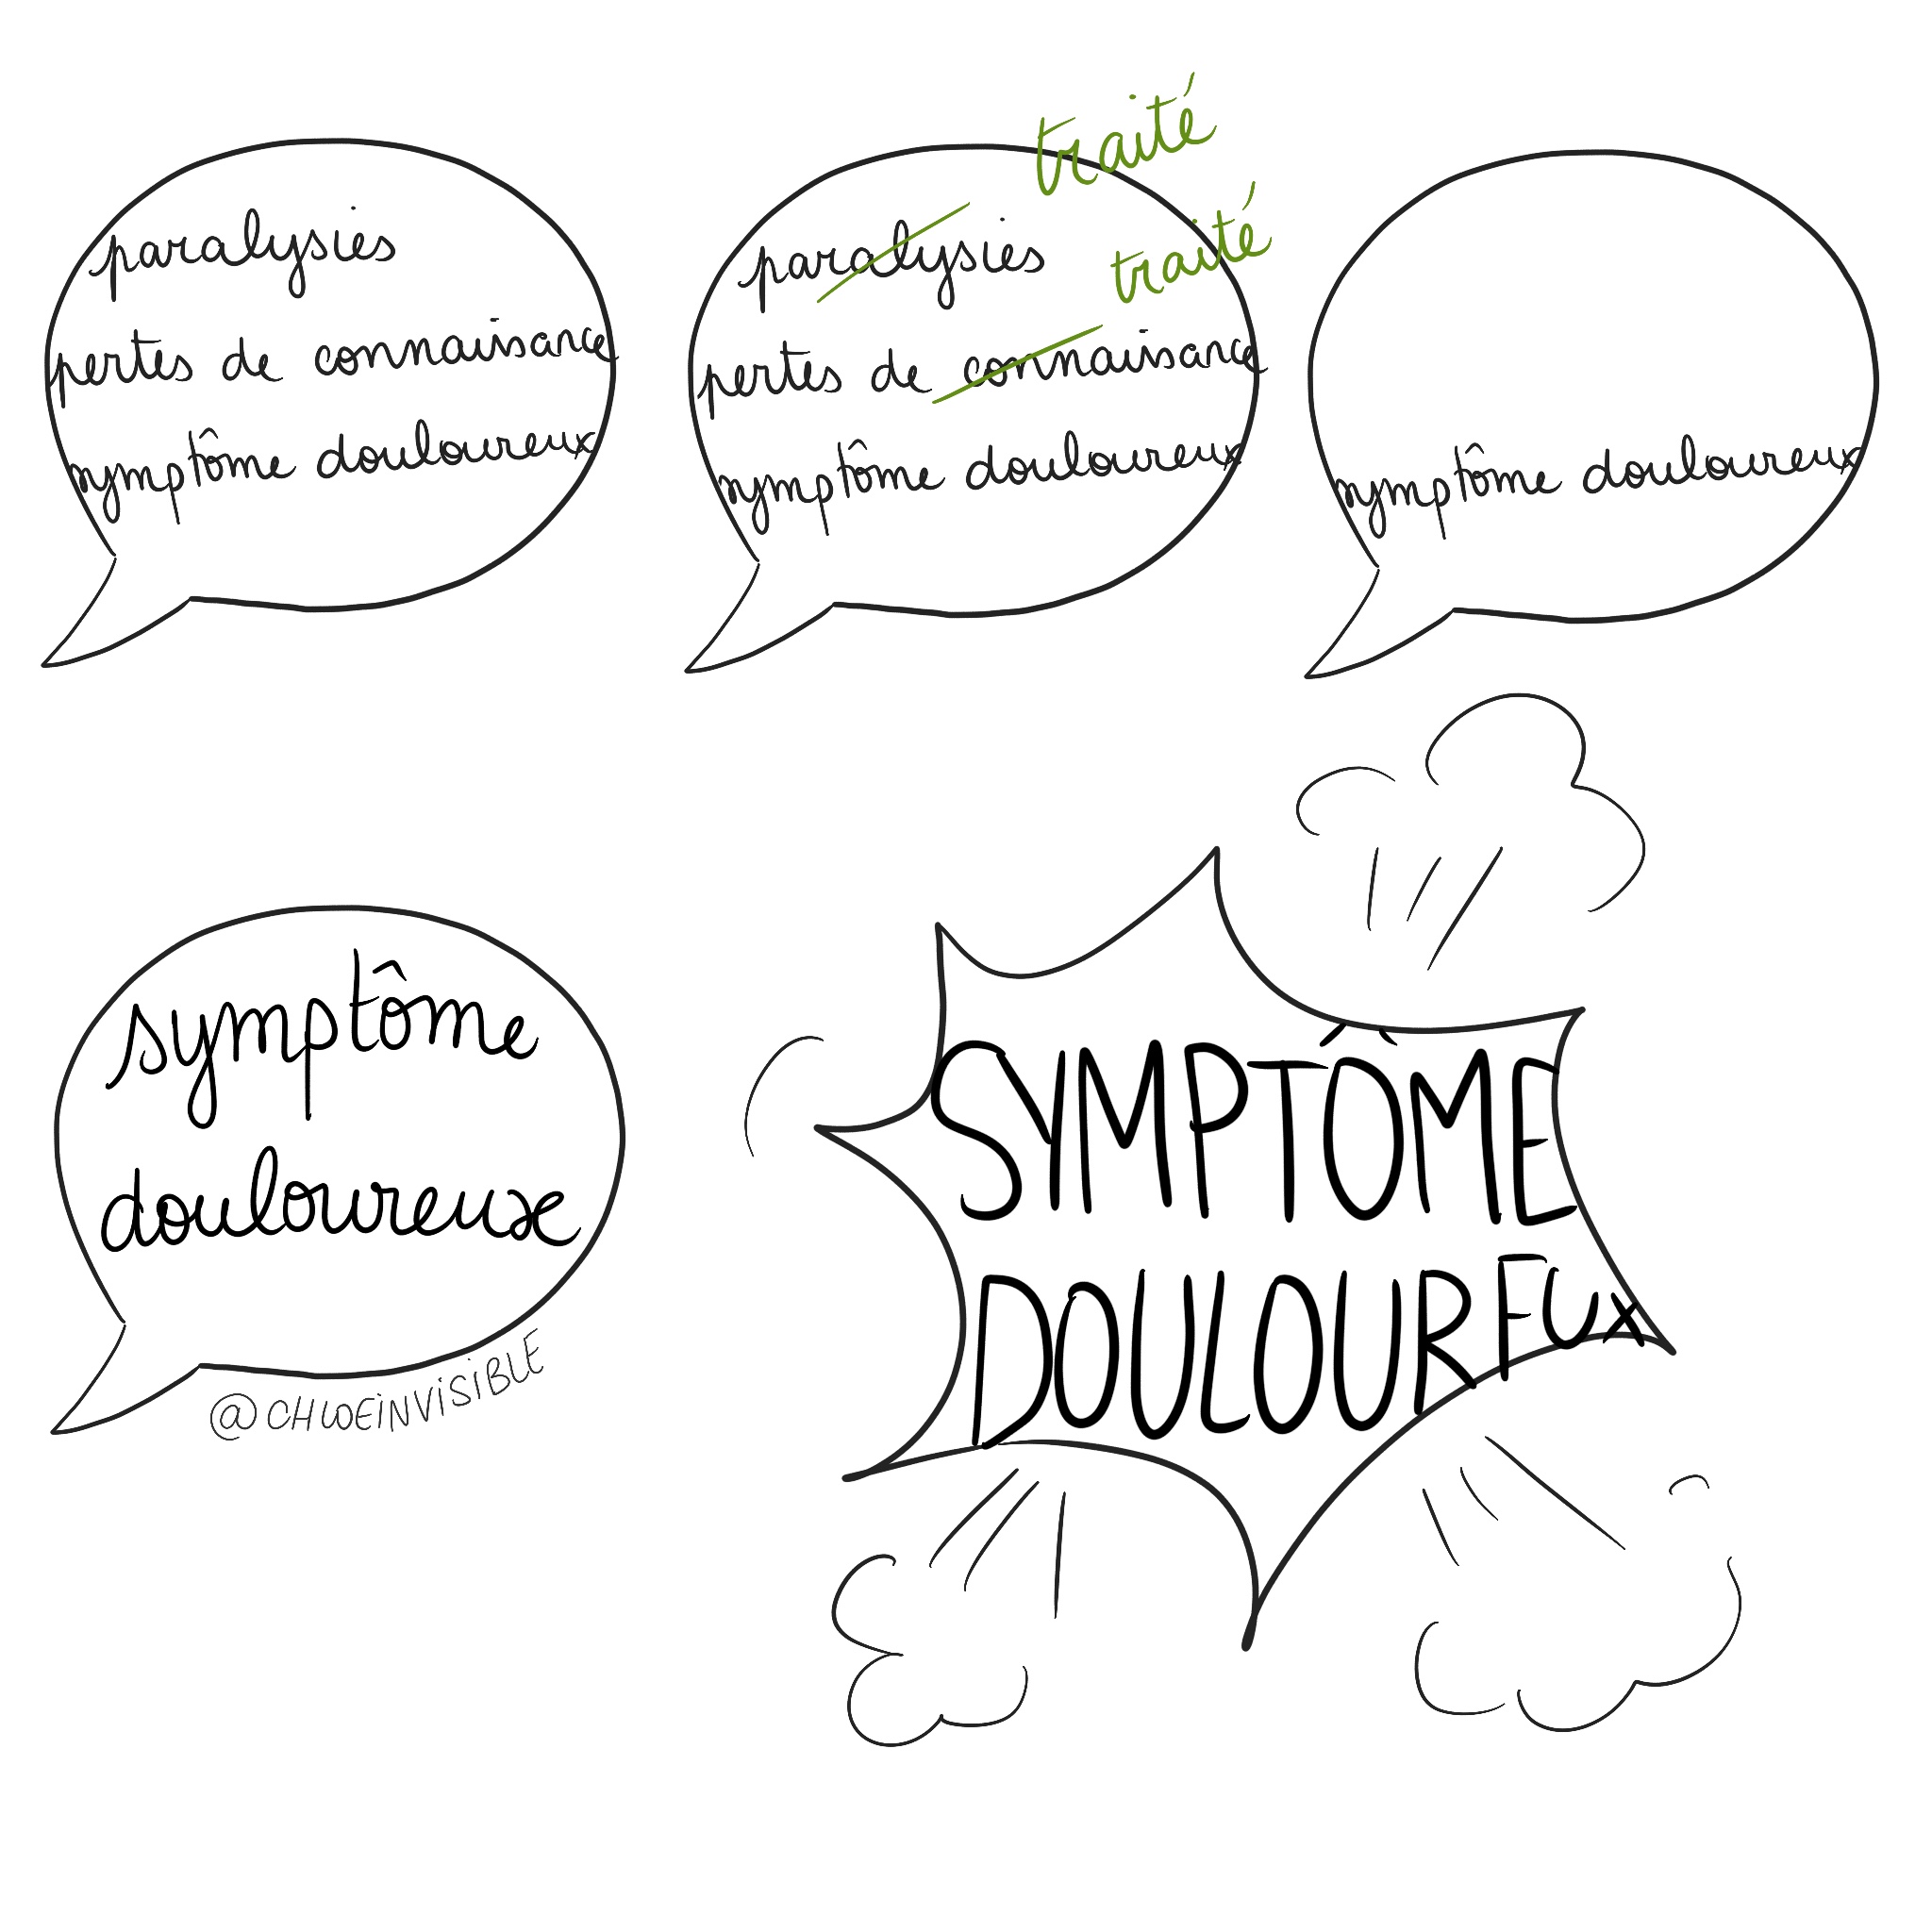 paralysies
pertes de connaisance
symptôme douloureux
traité
traité
paralysies
pertes de connaisance
symptôme douloureux
symptôme douloureux
symptôme
douloureuxe
@CHLOEiNViSiBLE
SYMPTÔME
DOULOUREUX